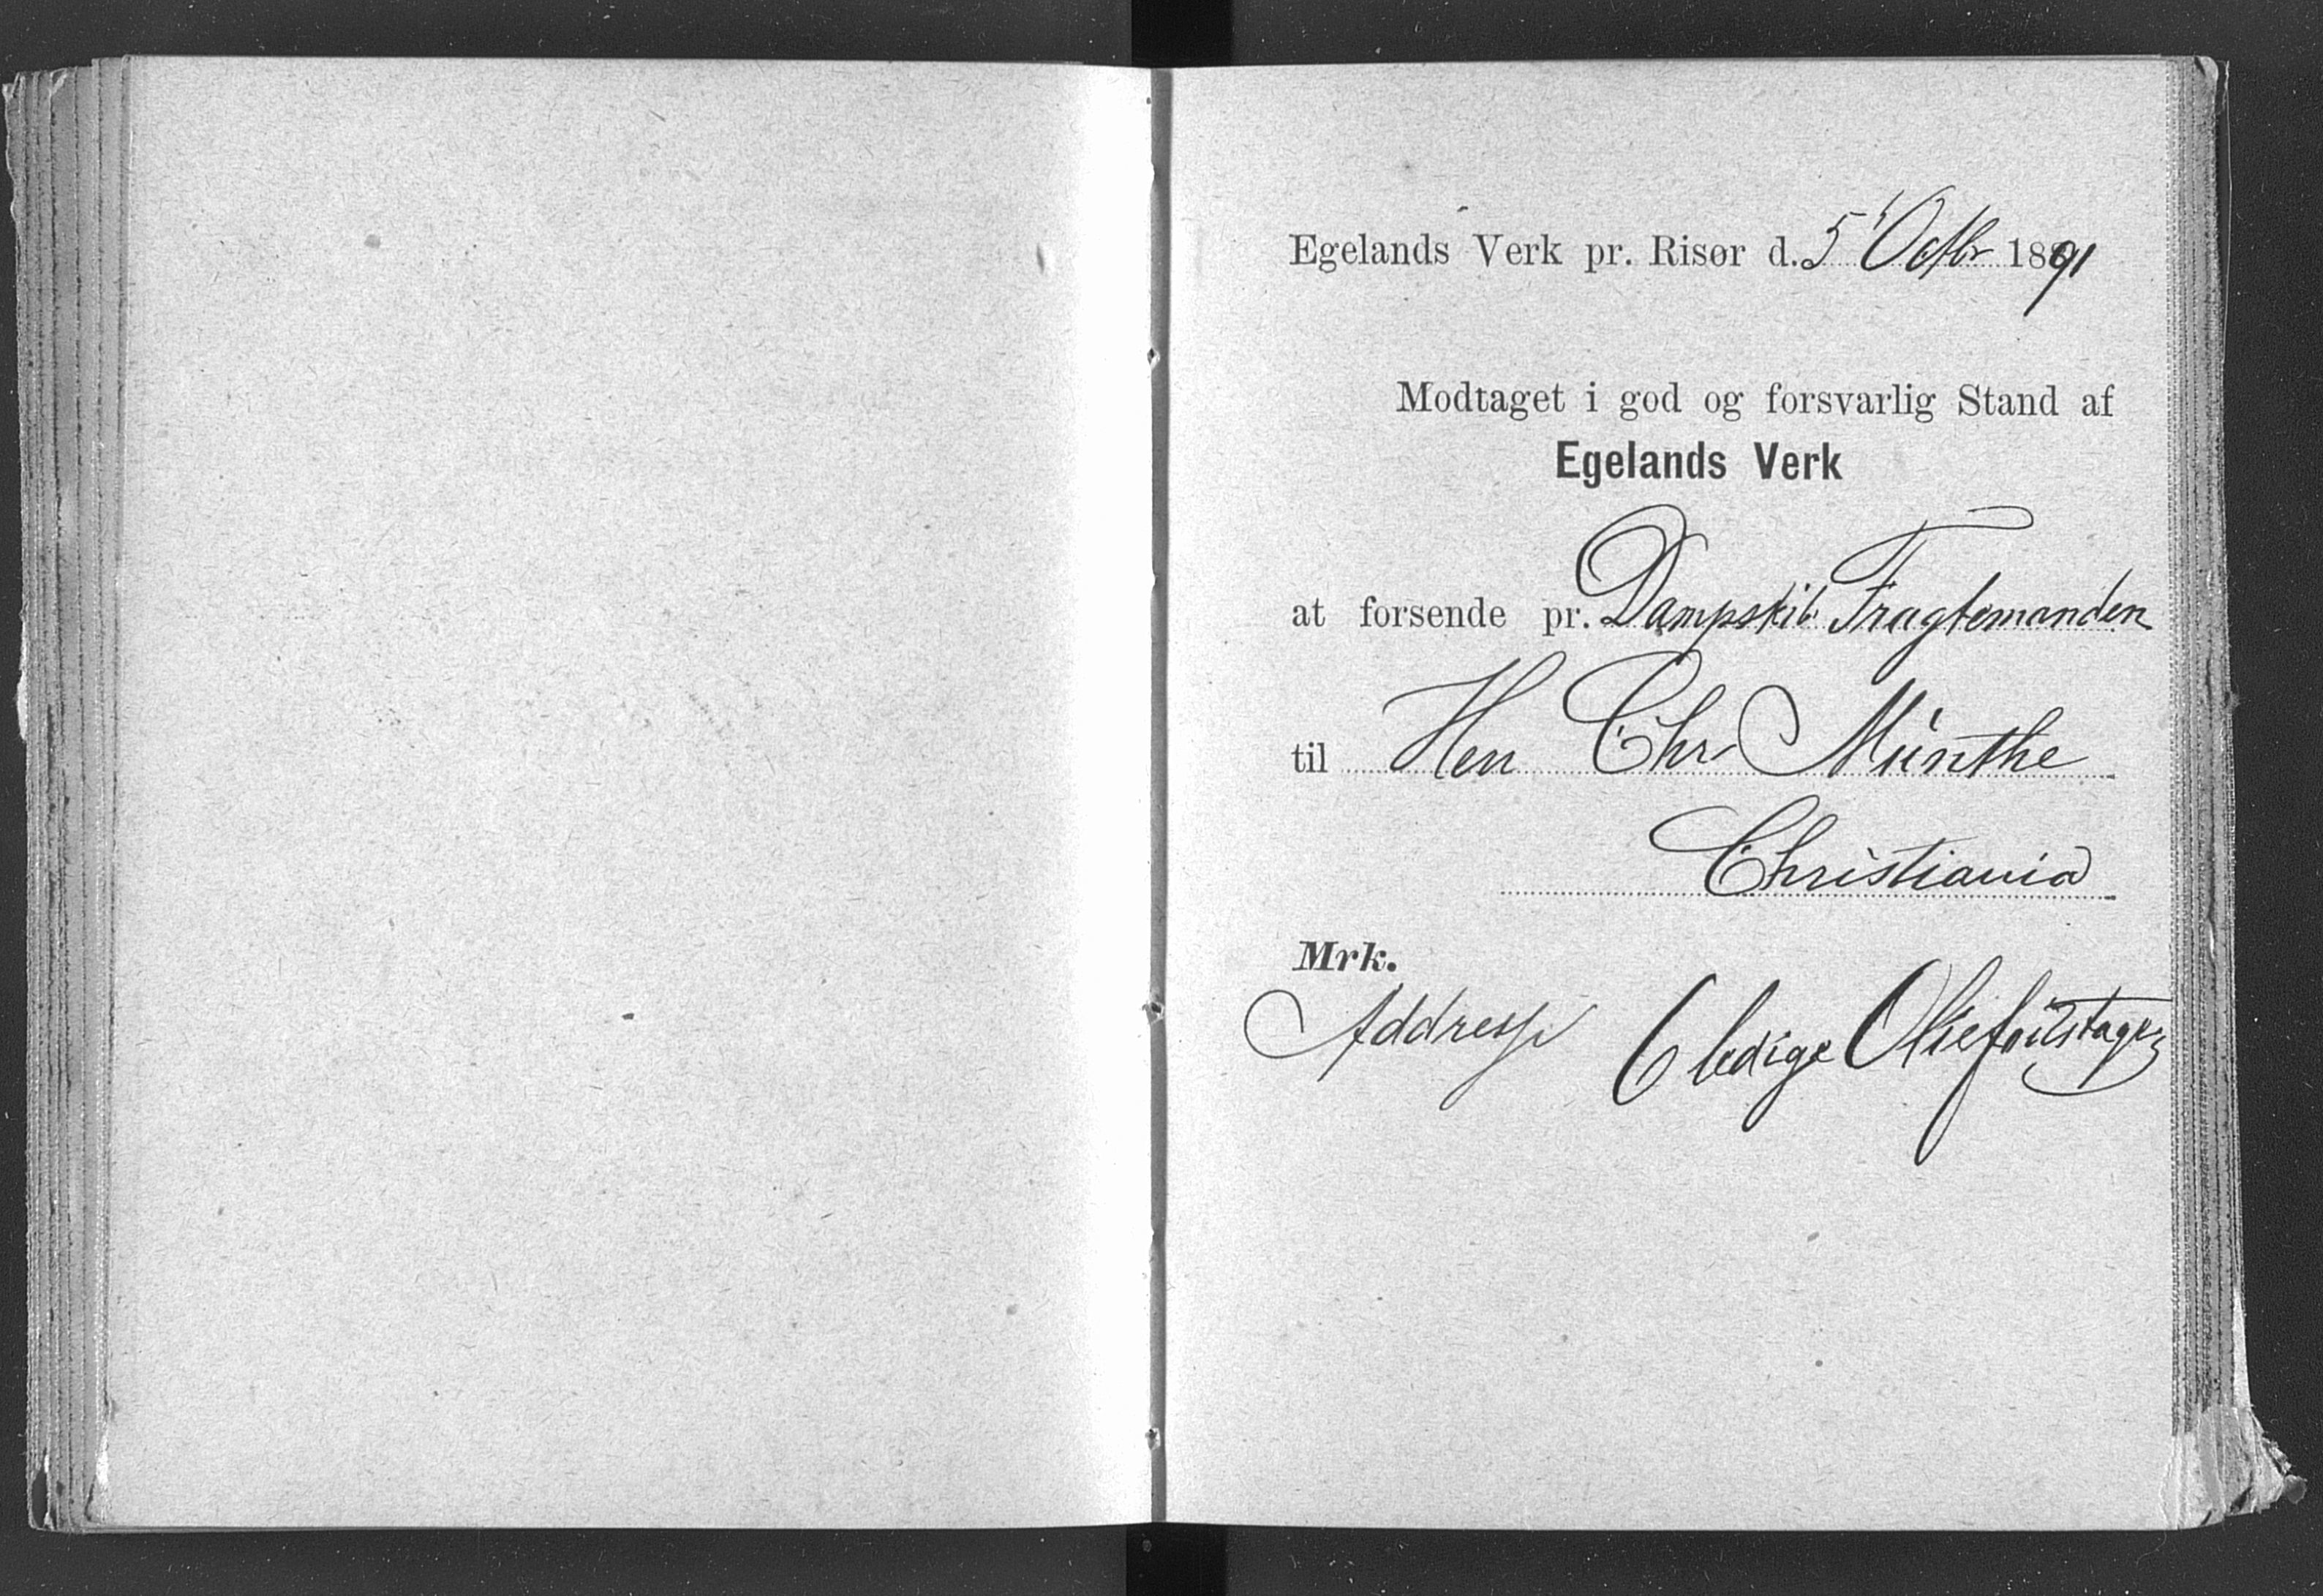 Egelands Verk pr. Risør d. 5' Octbr 1891
Modtaget i god og forsvarlig Stand af
Egelands Verk
at forsende pr. Dampskib Fragtemanden
til Herr Chr Münthe
Christiania
Mrk.
Addresse 6 ledige Oliefoustager